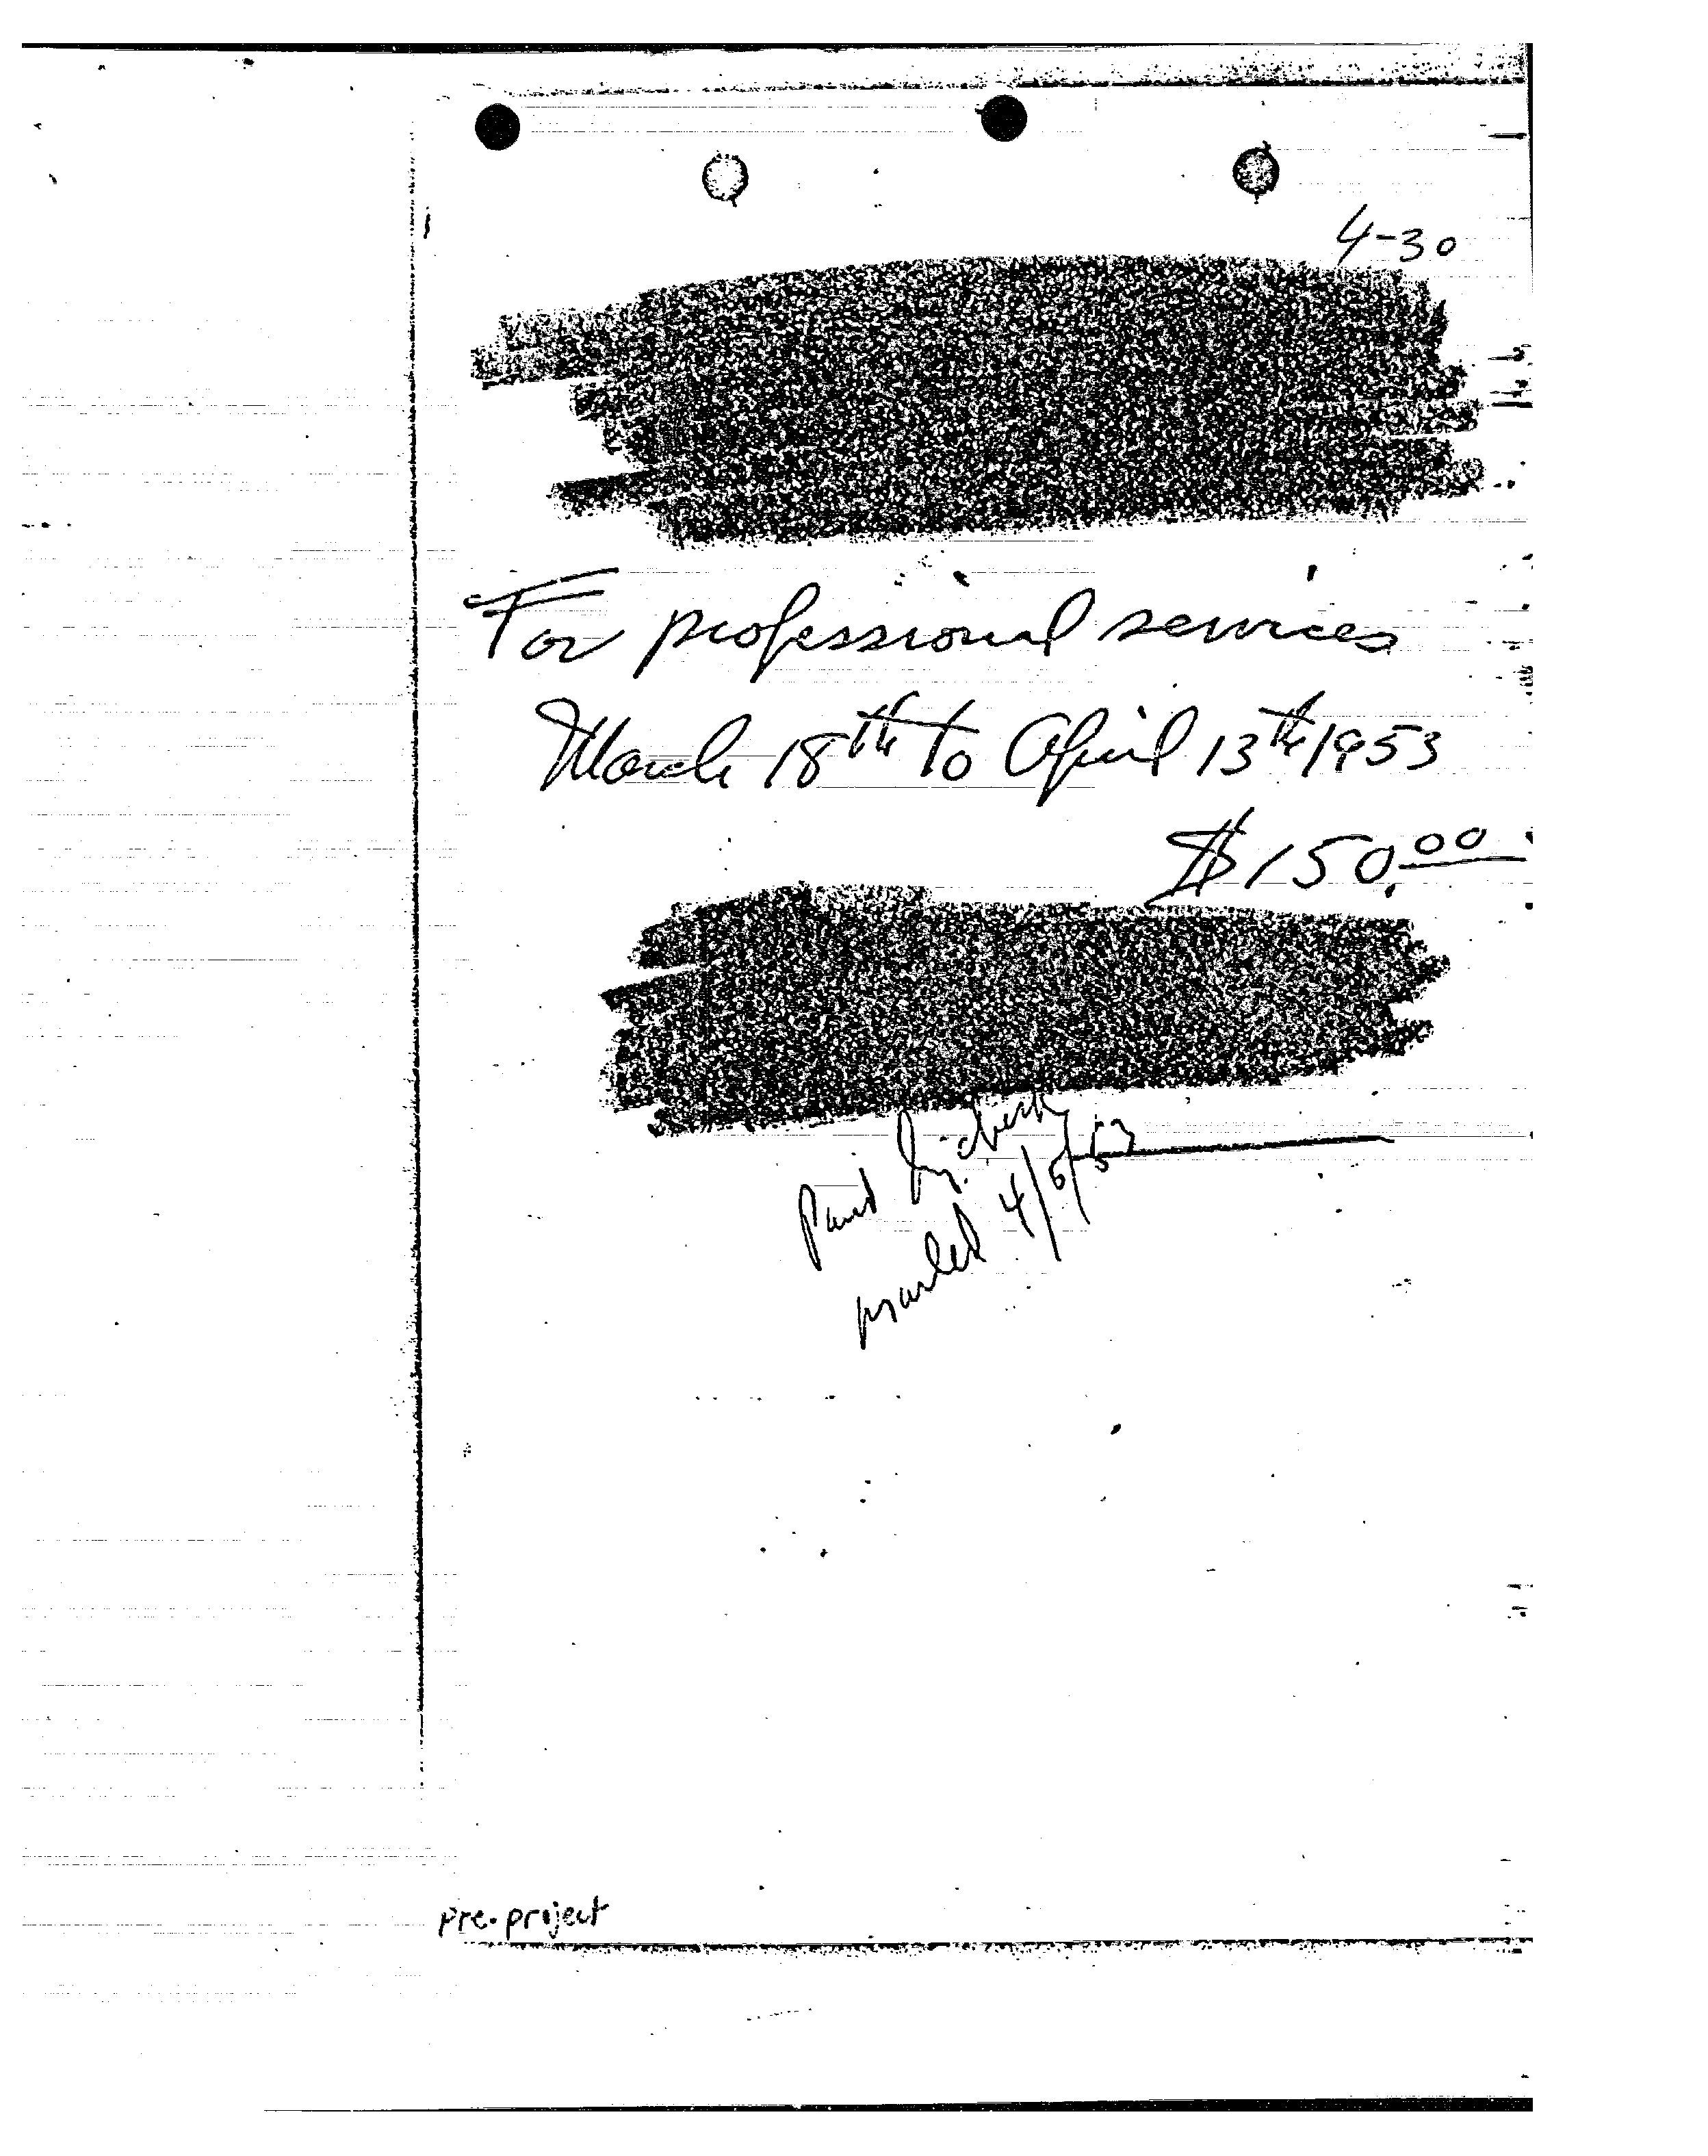 4-30
For professional services
March 18th to April 13th 1953
$150.00
Paid by check
mailed 4/5/53
pre-project